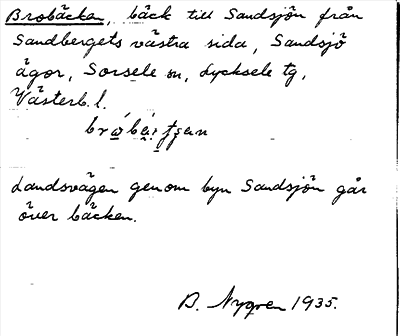 Brobäcken, bäck till Sandsjön från
Sandbergets västra sida, Sandsjö
ägor, Sorsele sn, Lycksele tg,
Västerb. l.
Landsvägen genom byn Sandsjön går
över bäcken.
B. Nygren 1935.